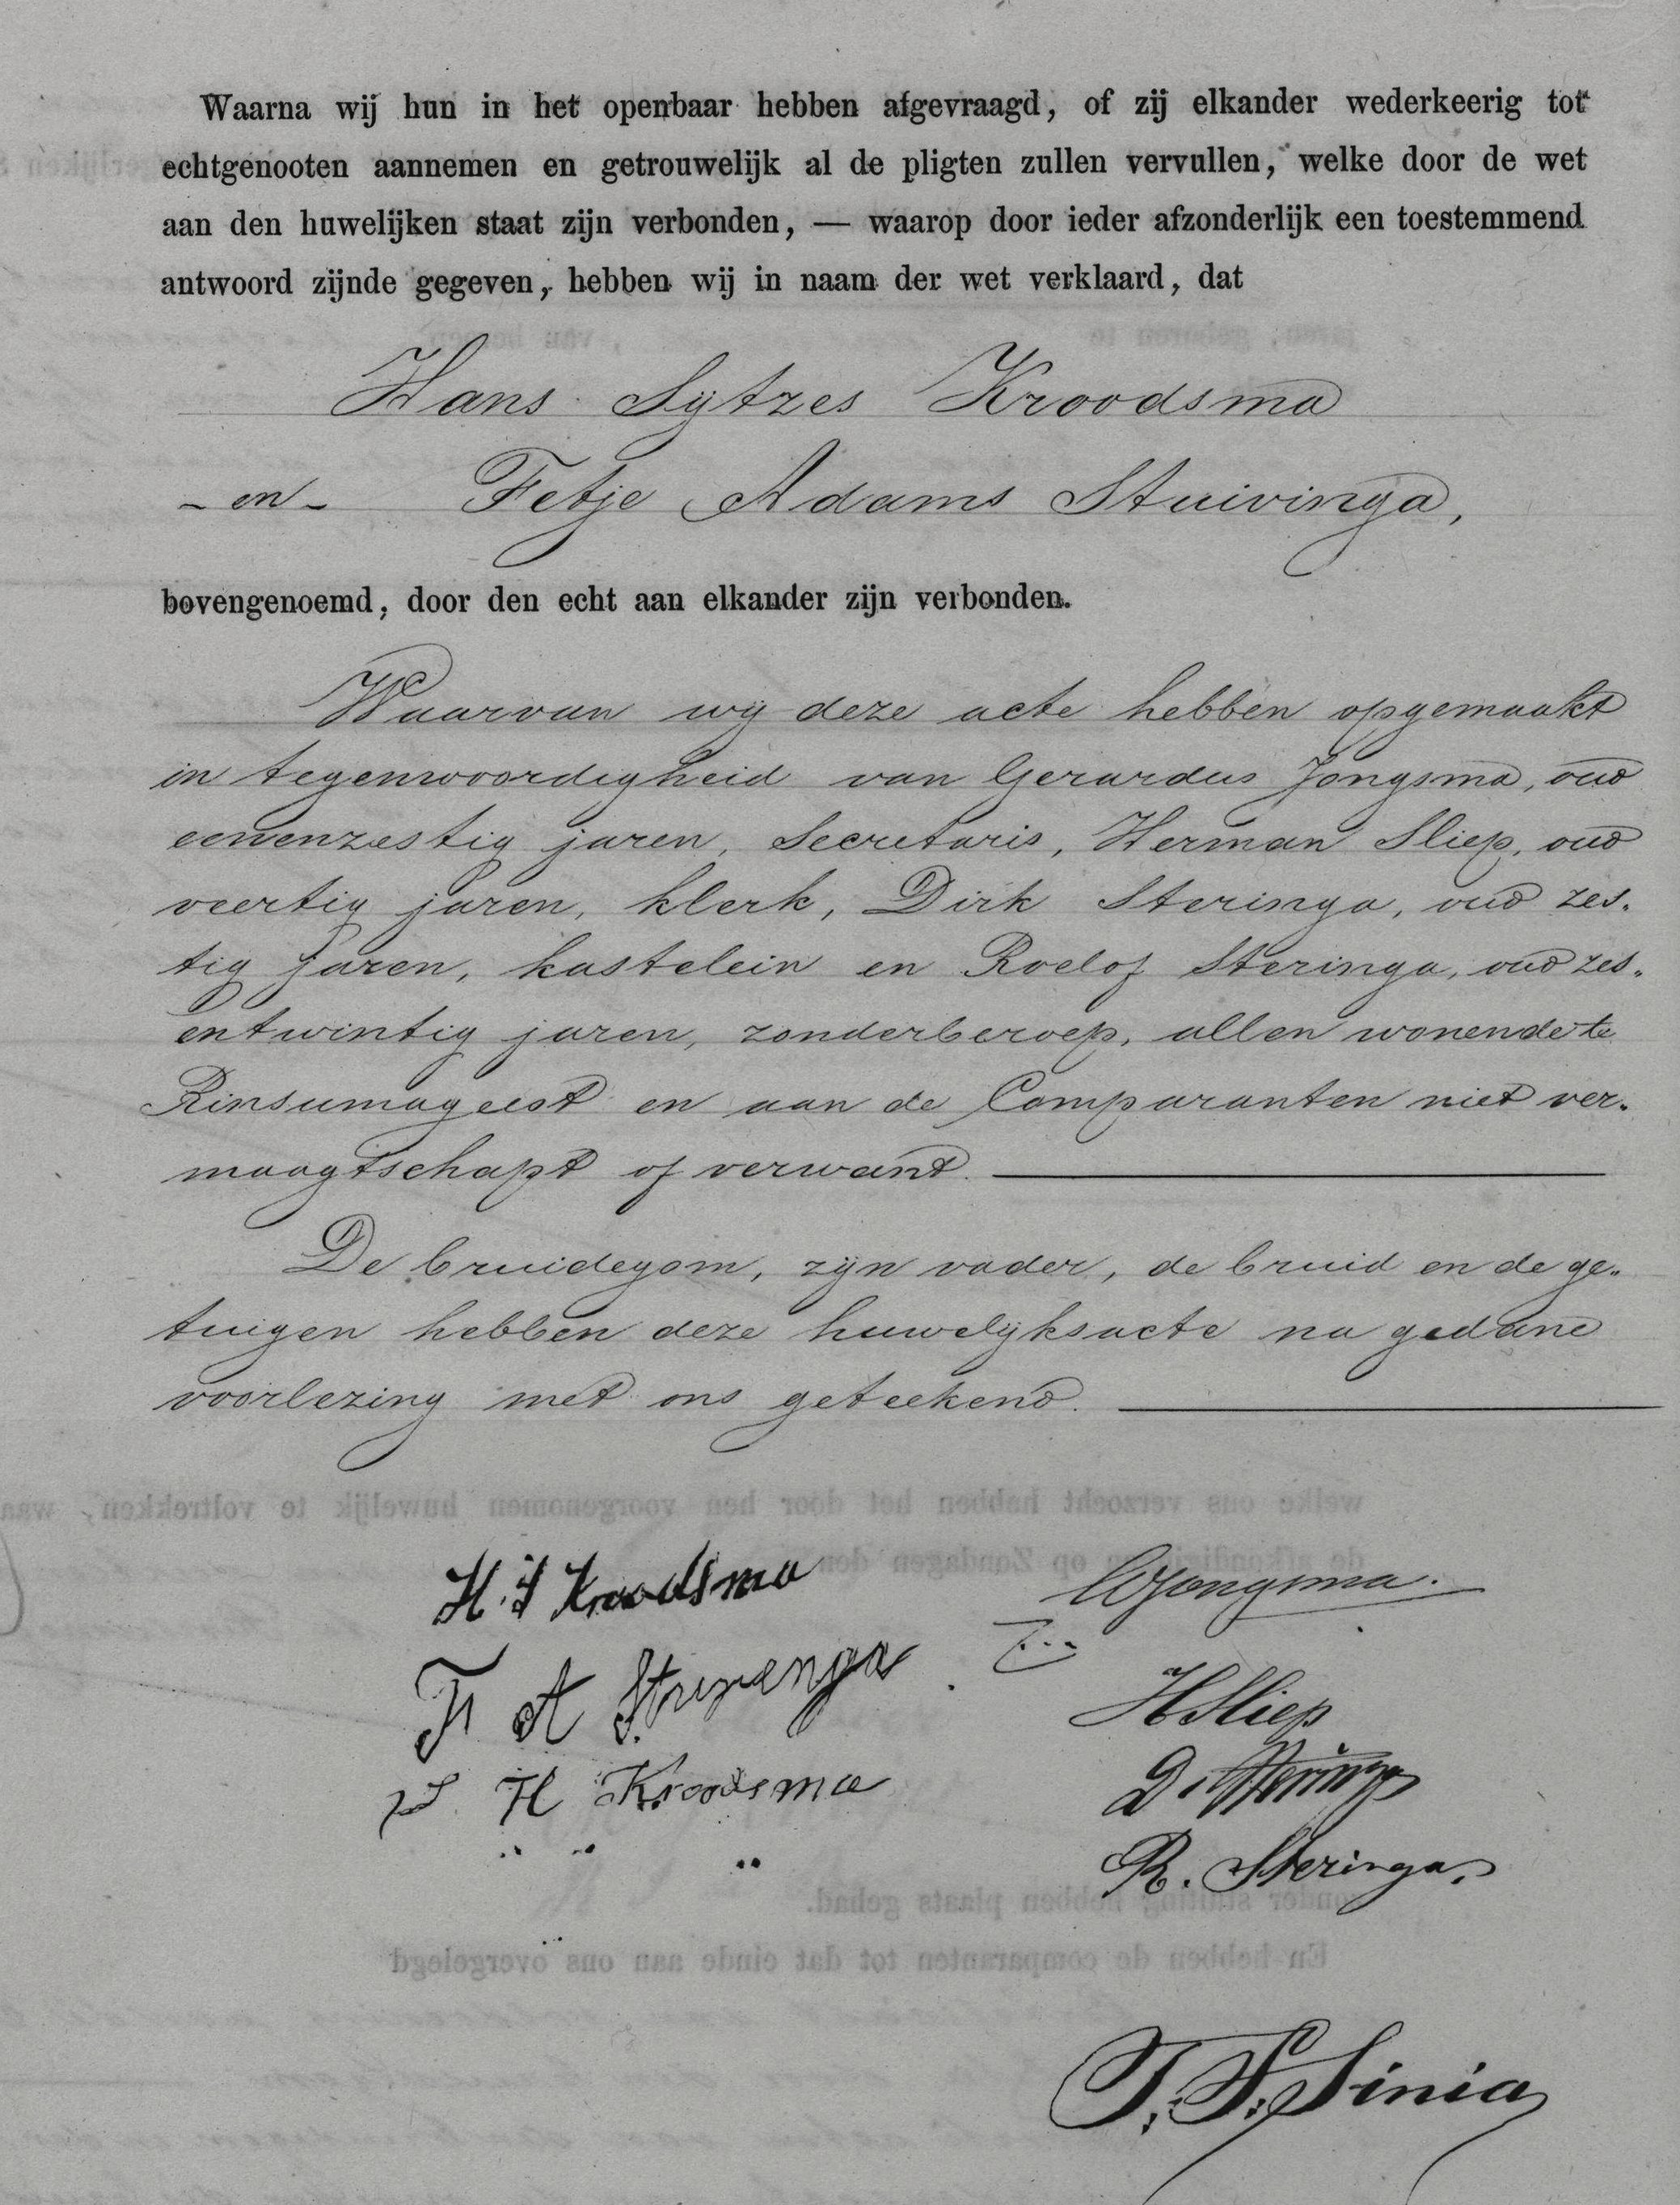 Waarna wij hun in het openbaar hebben afgevraagd, of zij elkander wederkeerig tot
echtgenooten aannemen en getrouwelijk al de pligten zullen vervullen, welke door de wet
aan den huwelijken staat zijn verbonden, — waarop door ieder afzonderlijk een toestemmend
antwoord zijnde gegeven, hebben wij in naam der wet verklaard, dat
Hans Sijtzes Kroodsma
- en - Fetje Adams Stuivinga,
bovengenoemd, door den echt aan elkander zijn verbonden.
Waarvan wij deze acte hebben opgemaakt
in tegenwoordigheid van Gerardus Jongsma, oud
eenenzestig jaren, Secretaris, Herman Sliep, oud
veertig jaren, klerk, Dirk Steringa, oud zes-
tig jaren, kastelein en Roelof Steringa, oud zes-
entwintig jaren, zonder beroep, allen wonende te
Rinsumageest en aan de Comparanten niet ver-
maagtschapt of verwant.
De bruidegom, zijn vader, de bruid en de ge-
tuigen hebben deze huwelijksacte na gedane
voorlezing met ons geteekend.
H. S Kroodsma
GJongsma.
F A Stuivenga
HSliep
S H Kroodsma
D. Steringa
R. Steringa
welke ons verzocht hebben het door hen voorgenomen huwelijk te voltrekken, waa
de afkondigingen op Zondagen den
zonder stuiting hebben plaats gehad.
En hebben de comparanten tot dat einde aan ons overgelegd
T. F. Sinia